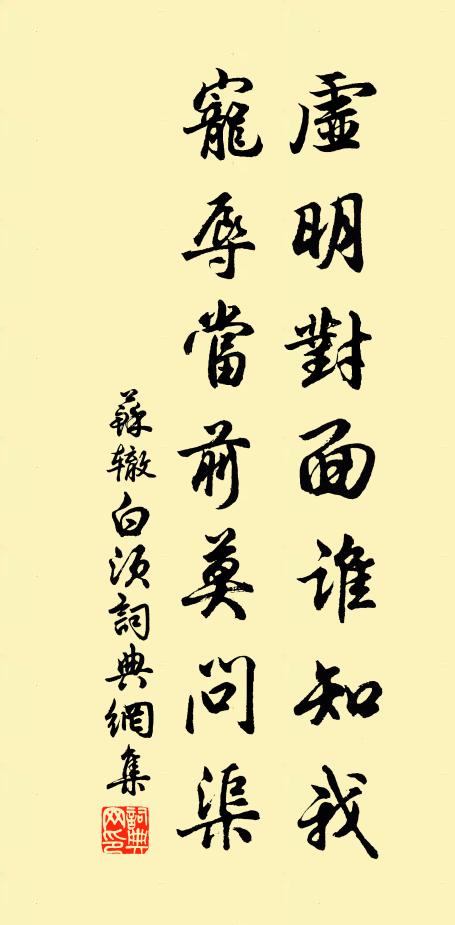 虛明對面誰知我
寵辱當前莫問渠
蘇辙白须詞典網集
詞典网印